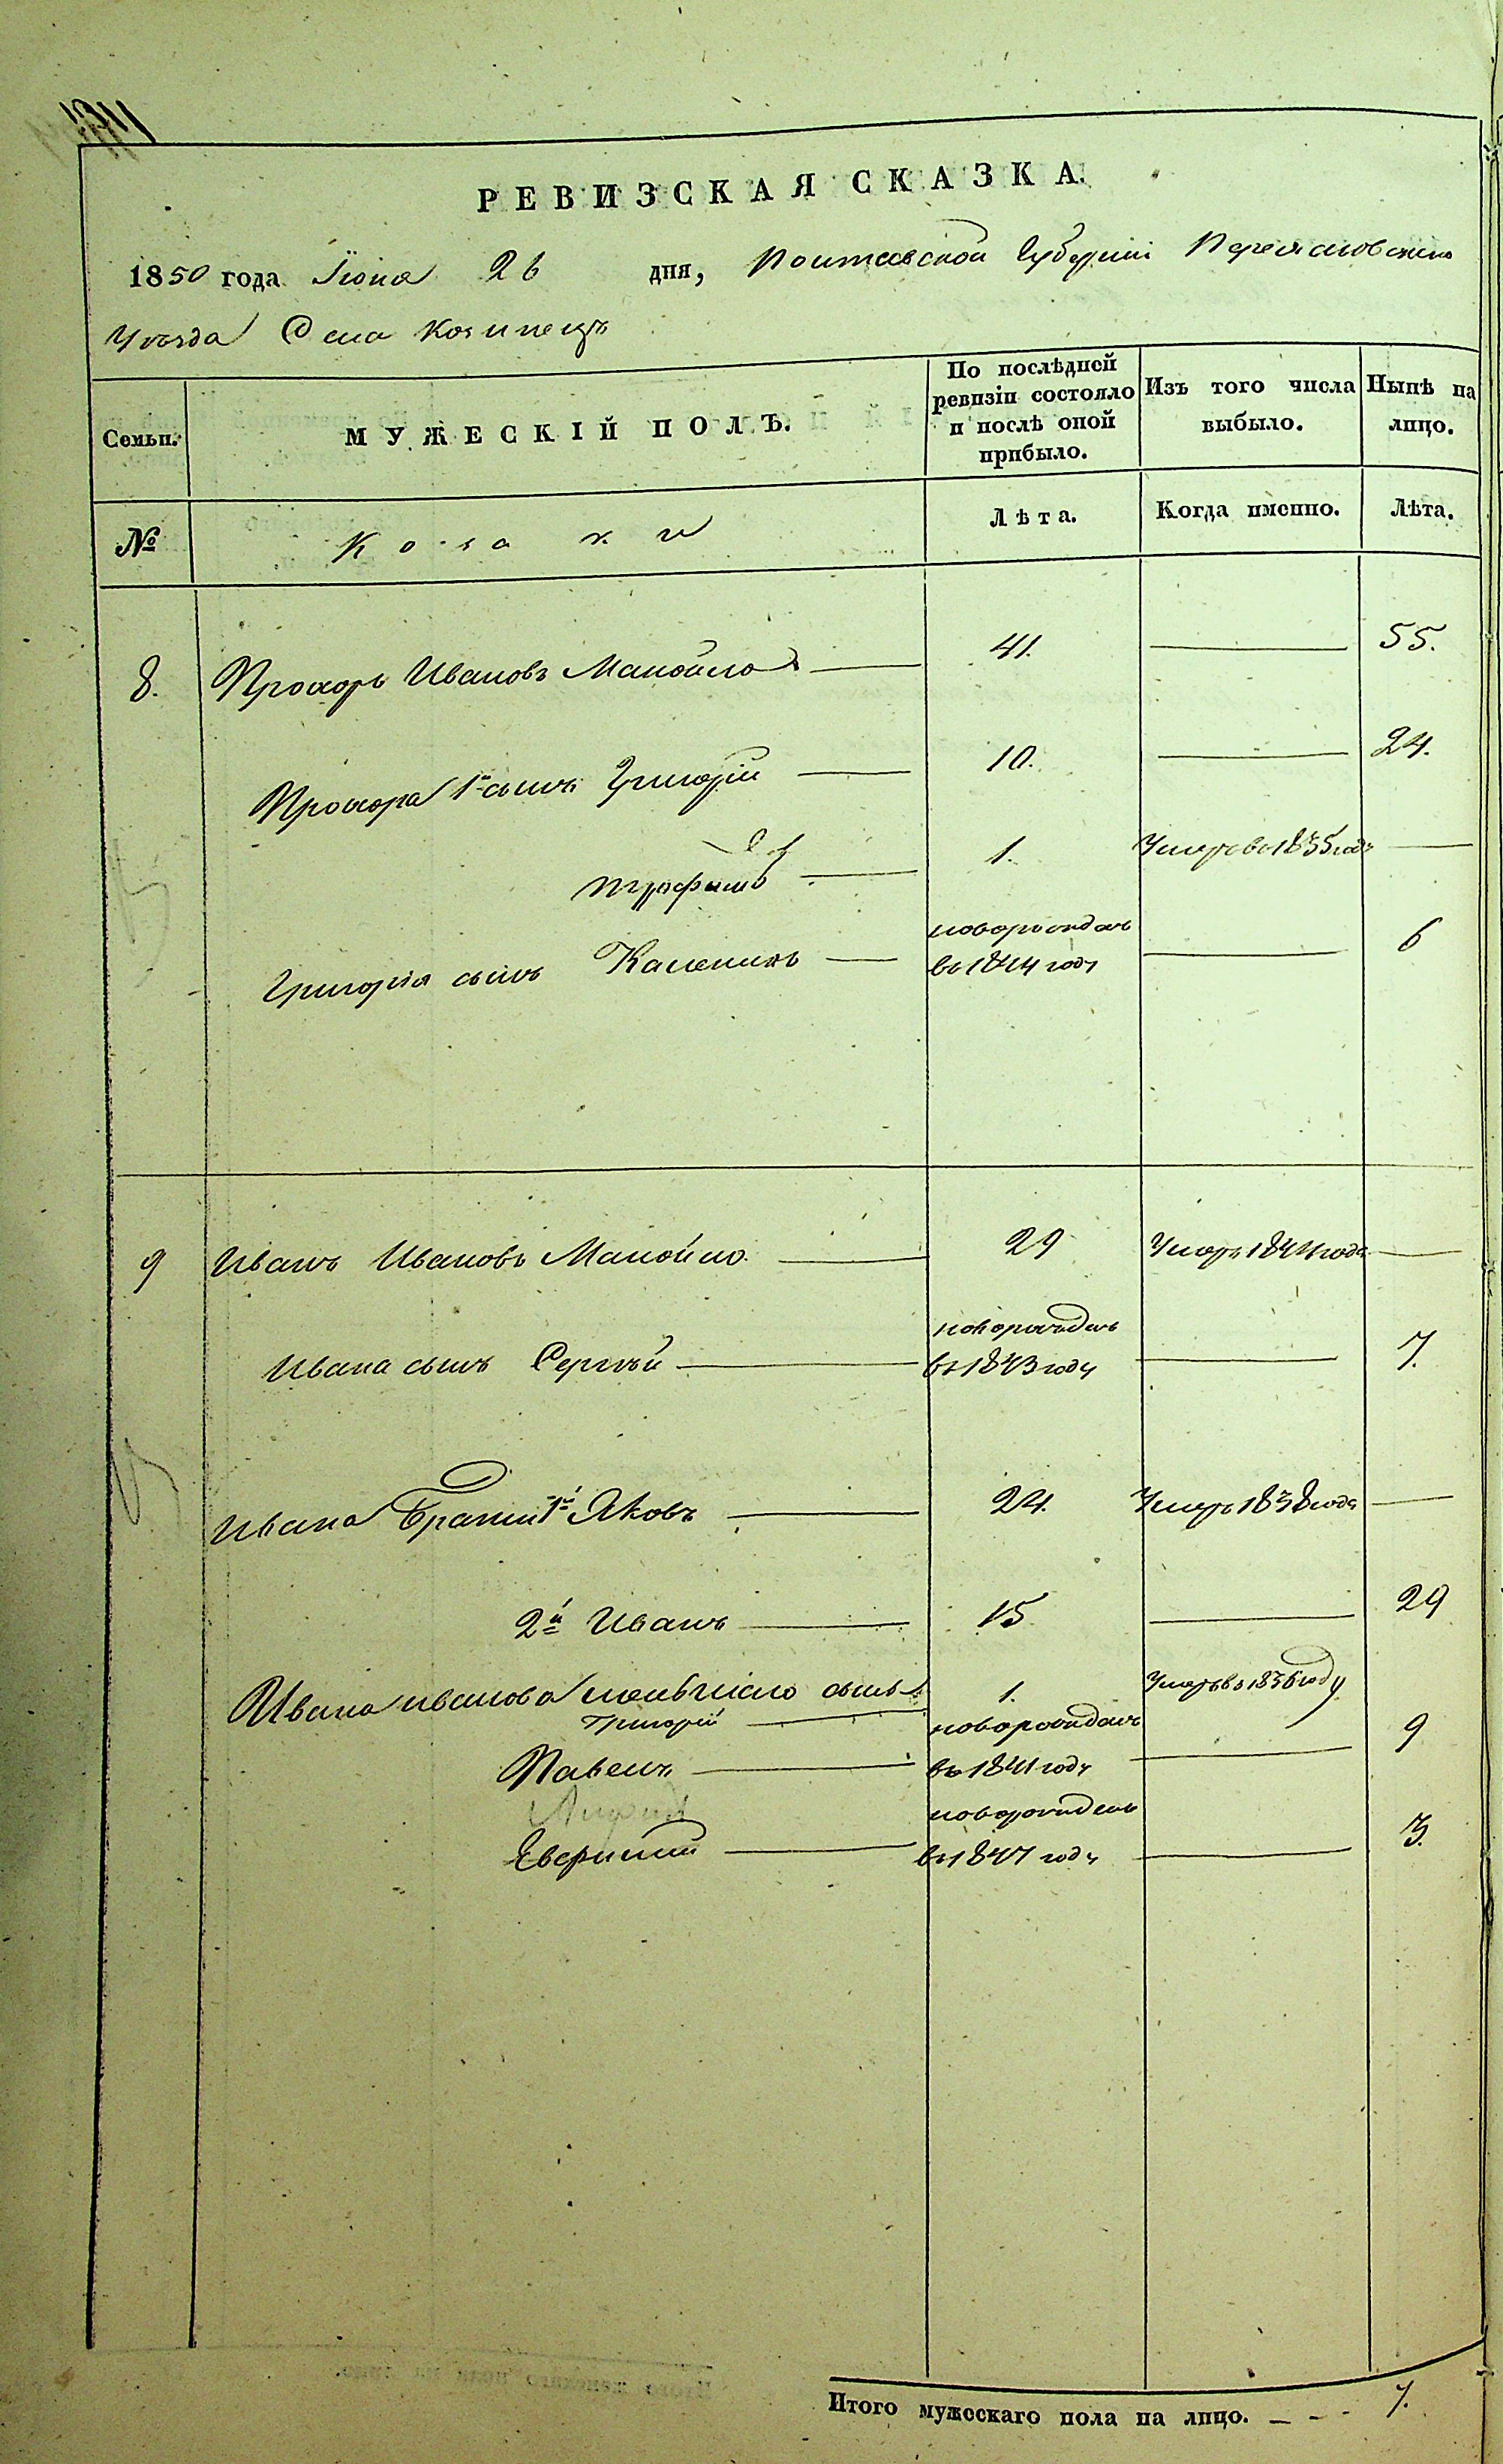 РЕВИЗСКАЯ СКАЗКА.
1850 года Іюня 26 дня, Полтавской Губерніи Переяславскаго
Уѣзда Села Козинецъ
Семьи.
МУЖЕСКІЙ ПОЛЪ.
По послѣдней ревизіи состояло и послѣ оной прибыло.
Изъ того числа выбыло.
Нынѣ на лицо.
№
Козаки
Лѣта.
Когда именно.
Лѣта.
8. Прохоръ Ивановъ Манойло 41. 55.
Прохора 1й сынъ Григорій 10. 24.
2й
Трофимъ 1. Умеръ въ 1835 годѣ
новорожденъ
Григорія сынъ Каленикъ въ 1844 году 6
9 Иванъ Ивановъ Манойло 29 Умеръ 1844 года
новорожденъ
Ивана сынъ Сергѣй въ 1843 году 7.
Ивана Братья 1й Яковъ 24. Умеръ 1838 года
2й Иванъ 15 29
Ивана Иванова меньшаго сынъ 1. Умеръ въ 1836 году
Григорій новорожденъ
Павелъ въ 1841 году 9
новорожденъ
въ 1847 году 3.
Итого мужескаго пола на лицо. 7.